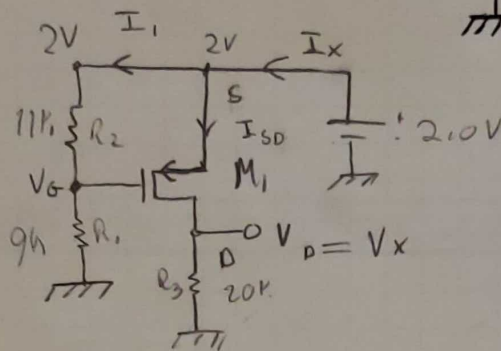 I₁
2V 2V Iₓ
S
11k R₂ I_SD 2.0V
V_G M₁
9k R₁ D V_D = Vx
R₃ 20k